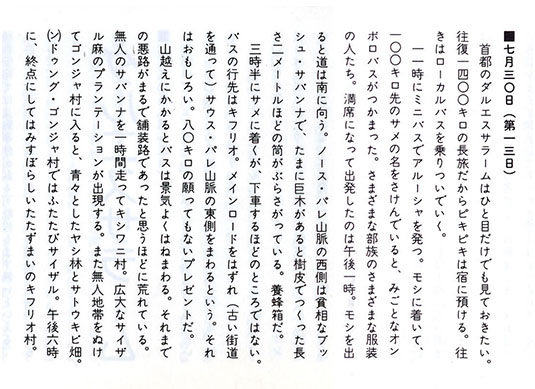 ■七月三〇日(第一三日)
首都のダルエスサラームはひと目だけでも見ておきたい。
往復一四〇〇キロの長旅だからピキピキは宿に預ける。往
きはローカルバスを乗りついでいく。
一一時にミニバスでアルーシャを発つ。モシに着いて、
一〇〇キロ先のサメの名をさけんでいると、みごとなオン
ボロバスがつかまった。さまざまな部族のさまざまな服装
の人たち。満席になって出発したのは午後一時。モシを出
ると道は南に向う。ノース・パレ山脈の西側は貧相なブッ
シュ・サバンナで、たまに巨木があると樹皮でつくった長
さ二メートルほどの筒がぶらさがっている。養蜂箱だ。
三時半にサメに着くが、下車するほどのところではない。
バスの行先はキフリオ。メインロードをはずれ(古い街道
を通って)サウス・パレ山脈の東側をまわるという。それ
はおもしろい。八〇キロの願ってもないプレゼントだ。
山越えにかかるとバスは景気よくはねまわる。それまで
の悪路がまるで舗装路であったと思うほどに荒れている。
無人のサバンナを一時間走ってキシワニ村。広大なサイザ
ル麻のプランテーションが出現する。また無人地帯をぬけ
てゴンジャ村に入ると、青々としたヤシ林とサトウキビ畑。
(ン)ドゥング・ゴンジャ村ではふたたびサイザル。午後六時
に、終点にしてはみすぼらしいたたずまいのキフリオ村。